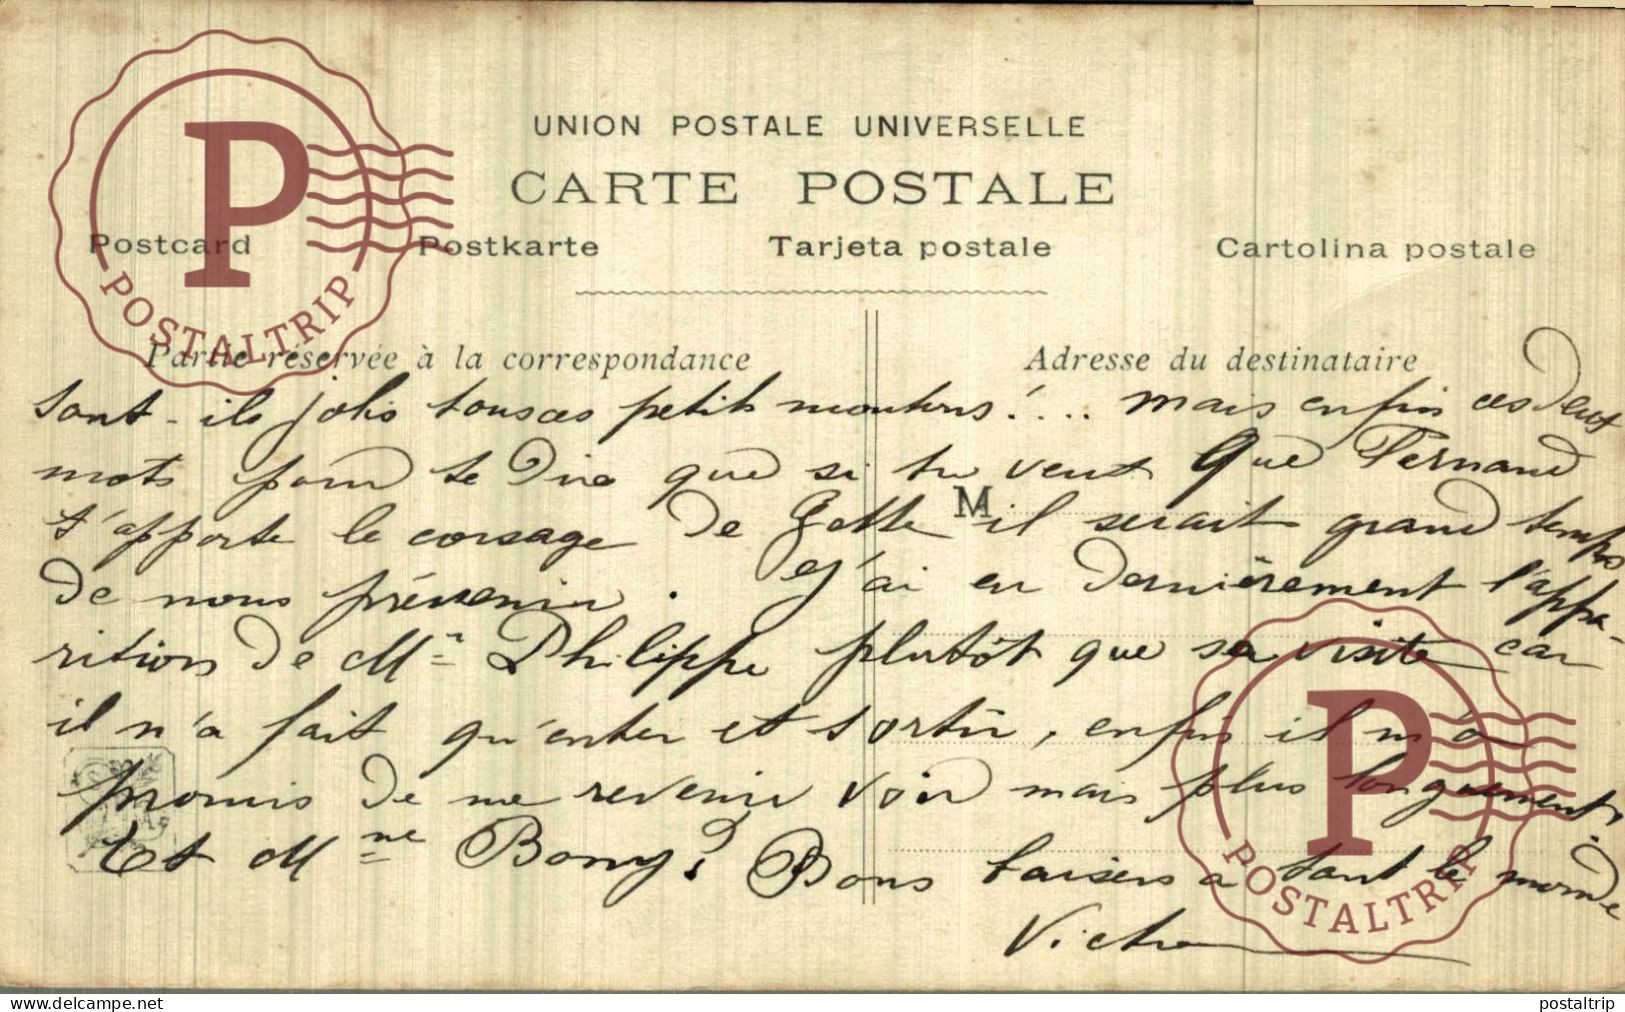 UNION POSTALE UNIVERSELLE
CARTE POSTALE
Postcard Postkarte Tarjeta postale Cartolina postale
Partie réservée à la correspondance
Adresse du destinataire
Sont-ils jolis tous ces petits moutons!.... mais enfin ces deux
mots pour te dire que si tu veux que Fernand
t'apporte le corsage de il serait grand temps
de nous prévenir. J'ai eu dernièrement l'appa-
rition de Mr Philippe plutôt que sa visite car
il n'a fait qu'entrer et sortir, enfin il m'a
promis de me revenir voir mais plus longuement.
Et Mme Bony? Bons baisers à tout le monde
Victor
M
P
POSTALTRIP
P
POSTALTRIP
delcampe.net
postaltrip